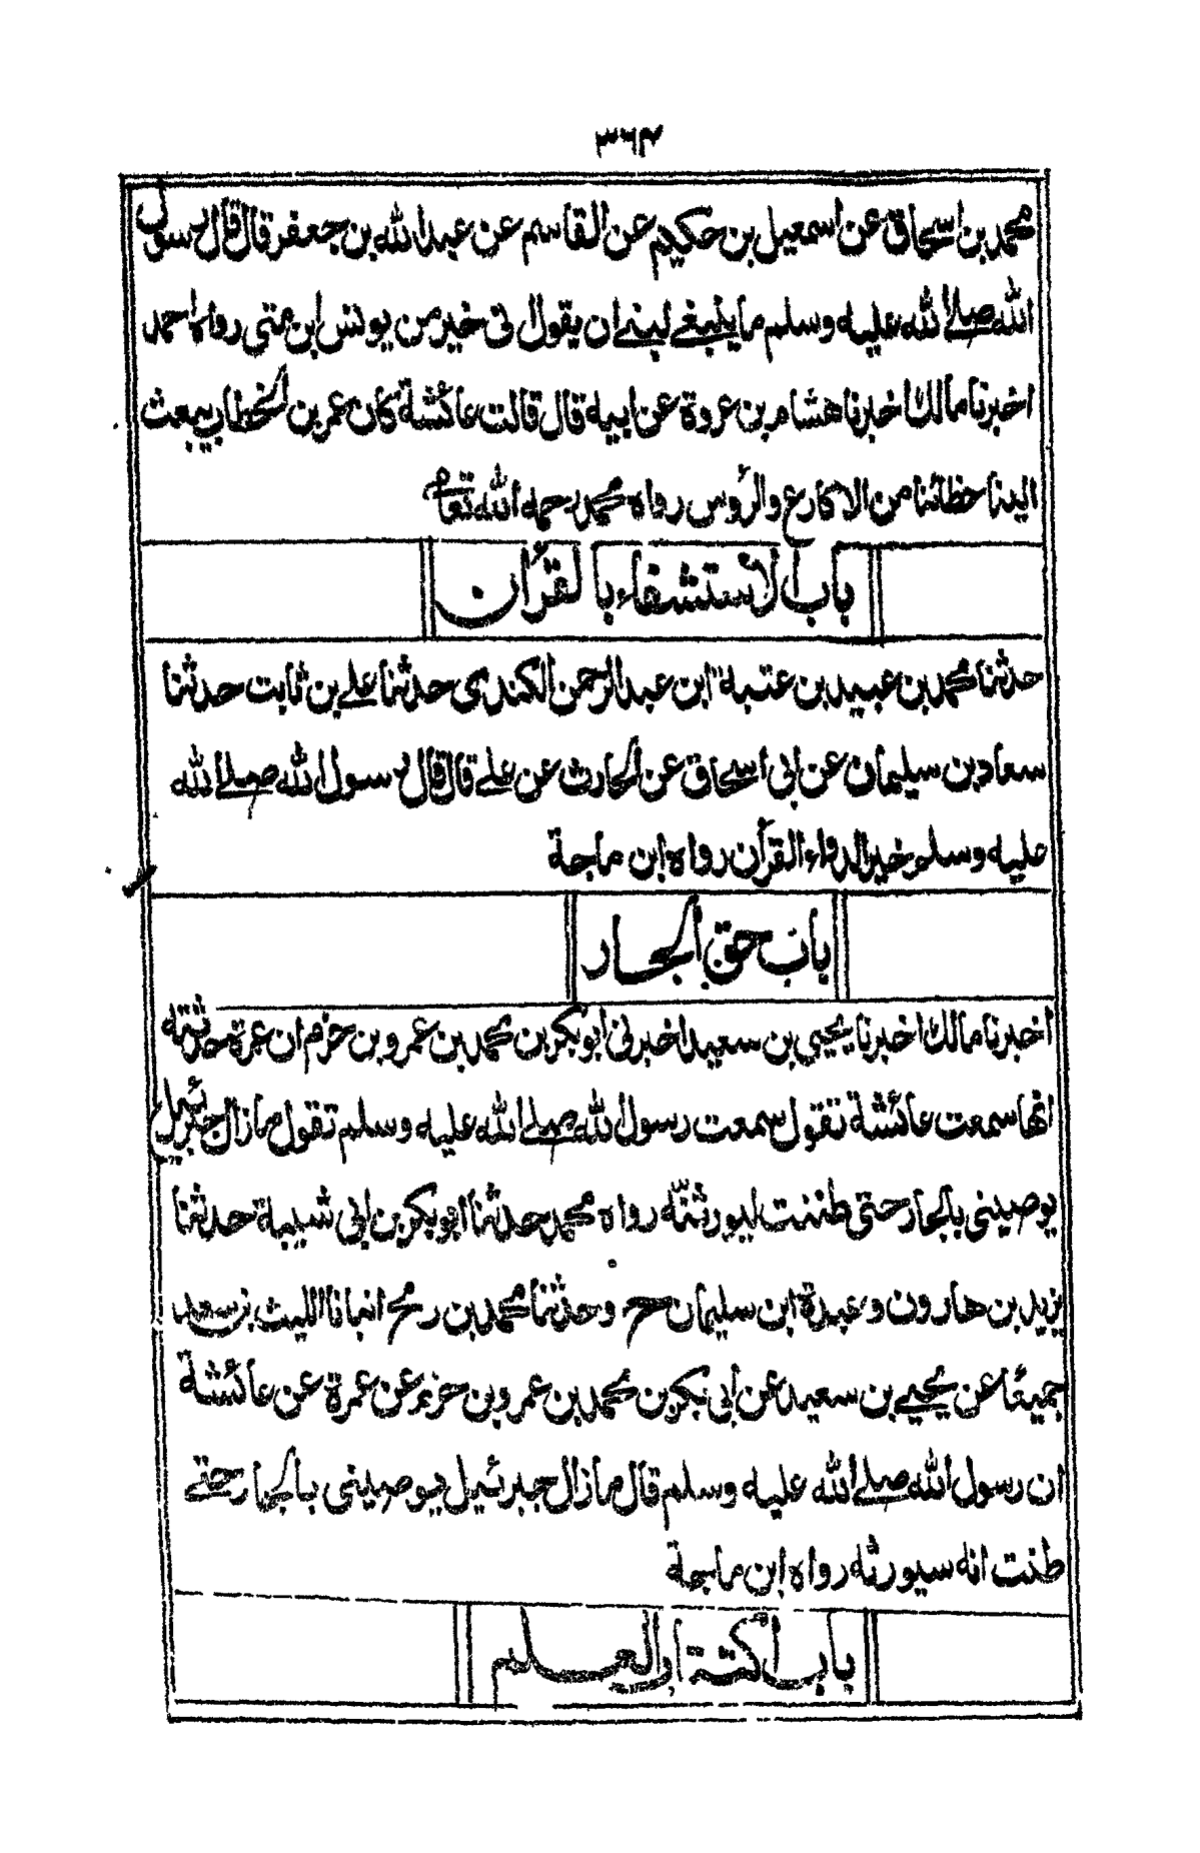 ۳۶۴
محمد بن اسحاق عن اسمعیل بن حکیم عن القاسم عن عبد الله بن جعفر قال قال رسول
الله صلے الله علیه وسلم ما ینبغے لنبے ان یقول انی خیر من یونس ابن متی رواه احمد
اخبرنا مالك اخبرنا هشام بن عروة عن ابیه قال قالت عائشة کان عمر بن الخطاب یبعث
الینا حظائنا من الاکارع والرؤس رواه محمد رحمه الله تعالے
باب الاستشفاء بالقرآن
حدثنا محمد بن عبید بن عتبة ابن عبد الرحمن الکندی حدثنا علے بن ثابت حدثنا
سعاد بن سلیمان عن ابی اسحاق عن الحارث عن علے قال قال رسول الله صلے الله
علیه وسلم خیر الدواء القرآن رواه ابن ماجة
باب حق الجار
اخبرنا مالك اخبرنا یحیی بن سعید اخبرنی ابو بکر بن محمد بن عمرو بن حزم ان عمرة حدثته
انها سمعت عائشة تقول سمعت رسول الله صلے الله علیه وسلم تقول ما زال جبرئیل
یوصینی بالجار حتی ظننت لیورثنّه رواه محمد حدثنا ابو بکر بن ابی شیبة حدثنا
یزید بن هارون وعبدة ابن سلیمان ح وحدثنا محمد بن رمح انبانا اللیث بن سعد
جمیعًا عن یحیے بن سعید عن ابی بکر بن محمد بن عمرو بن حزم عن عمرة عن عائشة
ان رسول الله صلے الله علیه وسلم قال ما زال جبرئیل یوصینی بالجار حتے
ظننت انه سیورثه رواه ابن ماجة
باب اکتتاب العلم